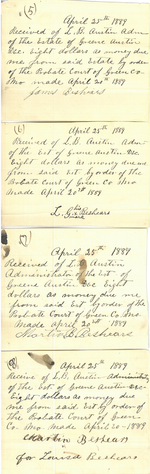 (5)
April 25th 1889
Received of L. H. Austin Adm
of the estate of Greene Austin
Dec. Eight dollars as money due
me from said estate by order
of the Probate Court of Green Co.
Mo made April 20th 1889
James Beshears
(6)
April 25th 1889
Received of L. H. Austin Adm
of the est of Green Austin Dec
Eight dollars as money due me
from said est by order of the
Probate Court of Green Co Mo
made April 20th 1889
L. G. Beshears
(7)
April 25th 1889
Received of L. H. Austin
Administrator of the est of
Greene Austin Dec Eight
dollars as money due me
from said est by order of the
Probate Court of Green Co Mo
Made April 20th 1889
Martin B. Beshears
(8)
April 25th 1889
Receive of L. H. Austin Administrator
of the est of Green Austin Dec.
Eight dollars as money due
me from said est by order of
the Probate Court of Green
Co. Mo made April 20- 1889
Martin Beshears
for Louisa Beshears